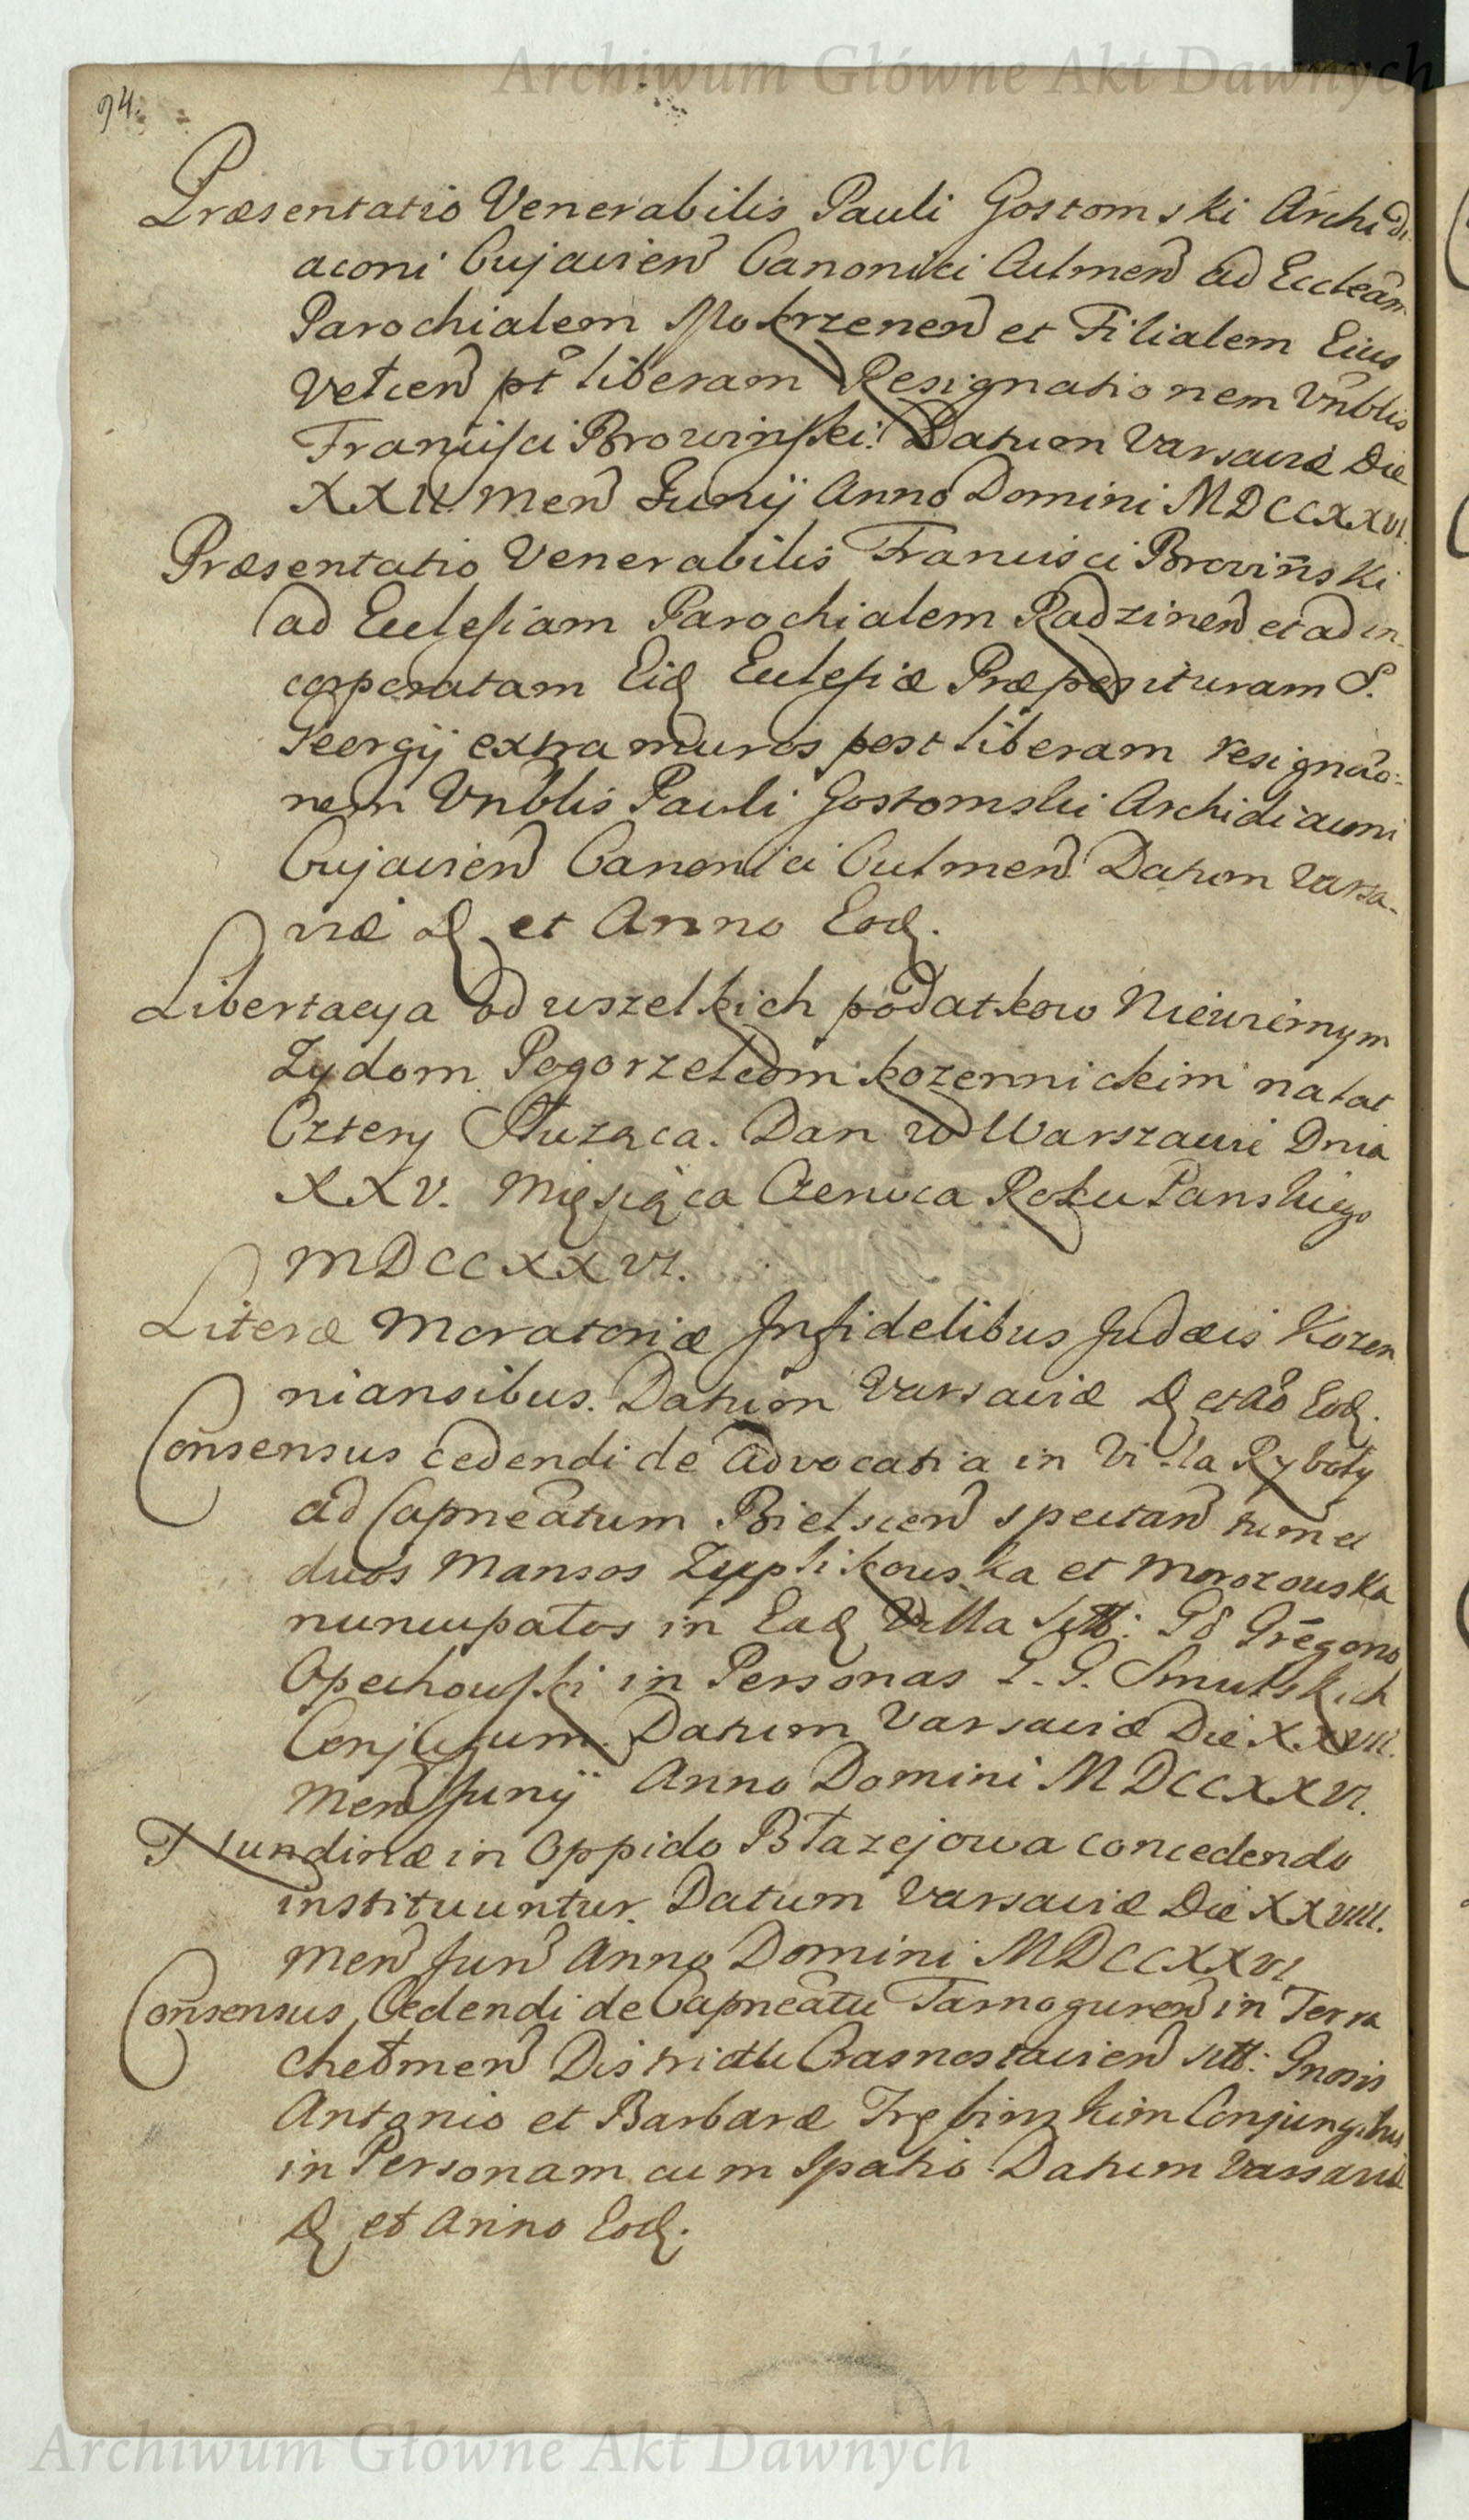 Archiwum Główne Akt Dawnych
94.
Præsentatio Venerabilis Pauli Gostomski Archidi-
aconi Cujavien Canonici Culmen ad Eccleām
Parochialem Mokrzenen et Filialem Eius
post liberam Resignationem Vnblis
Francisci Browinski. Datum Varsaviæ Die
XXII Men Junij Anno Domini MDCCXXVI.
Præsentatio Venerabilis Francisci Browinski
ad Ecclesiam Parochialem Radzinen et ad in-
corporatam Eid Ecclesiæ Præposituram S.
Georgij extra muros post liberam resignāo-
nem Vnblis Pauli Gostomski Archidiaconi
Cujavien Canonici Culmen Datum Varsa-
viæ D et Anno Eod.
Libertacya od wszelkich podatkow Niewiernym
Zydom Pogorzelcom kozennickim na lat
Cztery Służąca. Dan w Warszawie Dnia
XXV. Mięsiąca Czerwca Roku Panskiego
MDCCXXVI.
Literæ Moratoriæ Infidelibus Judæis Kozen
niansibus. Datum Varsaviæ D et Ao Eod.
Consensus cedendi de Advocatia in Villa Ryboły
ad Capneātum Bielscen spectan tum et
duos Mansos Zyplikowska et Morozowska
nuncupatos in Ead Villa Gd Gregorio
Opechowski in Personas G. G. Smulskich
Conjugum. Datum Varsaviæ Die XXVII.
Men Junij Anno Domini MDCCXXVI.
Nundinæ in Oppido Błazejowa concedendo
instituuntur. Datum Varsaviæ Die XXVIII.
Men Jun Anno Domini MDCCXXVI
Consensus Cedendi de Capneātu Tarnoguren in Terra
Chełmen Districtu Crasnostavien Gnosis
Antonio et Barbaræ Conjungibus
in Personam cum Spatio Datum Varsaviæ
D et Anno Eod.
Archiwum Główne Akt Dawnych